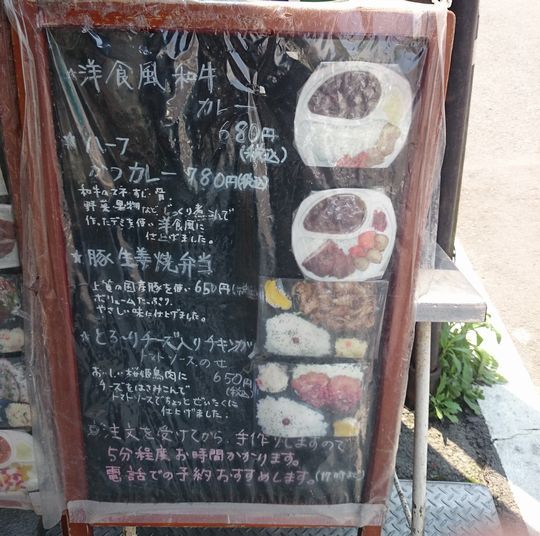 ★洋食風和牛
カレー
680円
(税込)
★ハーフ
かつカレー 780円(税込)
和牛のスネ・すじ・骨
野菜果物などじっくり煮こんで
作ったデミを使い洋食風に
仕上げました。
★豚生姜焼弁当
上質の国産豚を使い 650円(税込)
ボリュームたっぷり
やさしい味に仕上げました。
★とろ〜りチーズ入りチキンカツ
トマトソースのせ
おいしい桜姫鳥肉に 650円
チーズをはさみこんで (税込)
トマトソースでちょっとぜいたくに
仕上げました。
ご注文を受けてから手作りしますので
5分程度お時間かかります。
電話での予約おすすめします。